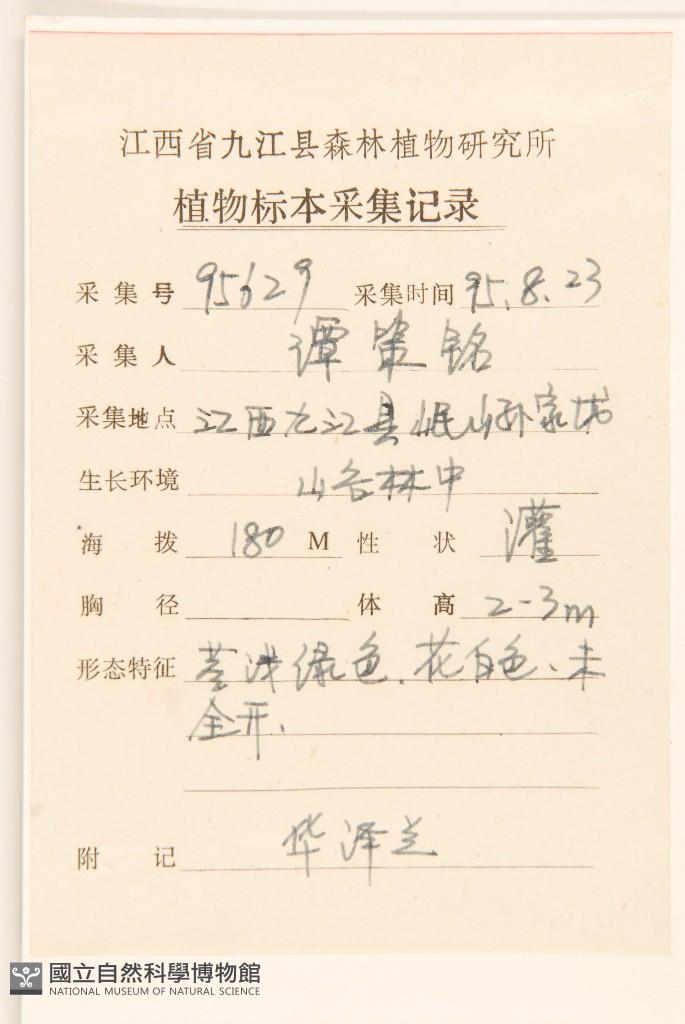 江西省九江县森林植物研究所
植物标本采集记录
采集号 95629 采集时间 95.8.23
采集人 谭策铭
采集地点 江西九江县岷山孙家坊
生长环境 山谷林中
海拨 180 M 性状 灌
胸径 体高 2-3m
形态特征 萼浅绿色、花白色、未
全开.
附记 华泽兰
國立自然科學博物館
NATIONAL MUSEUM OF NATURAL SCIENCE